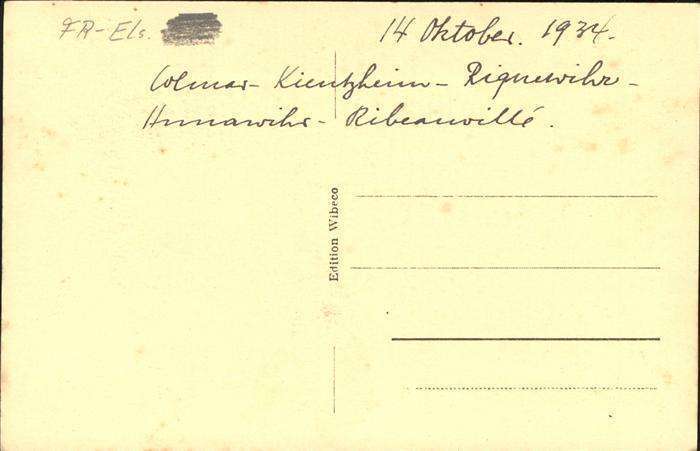 FR-Els.
14 Oktober. 1934.
Colmar - Kientzheim - Riquewihr -
Hunawihr - Ribeauvillé.
Edition Wibeco